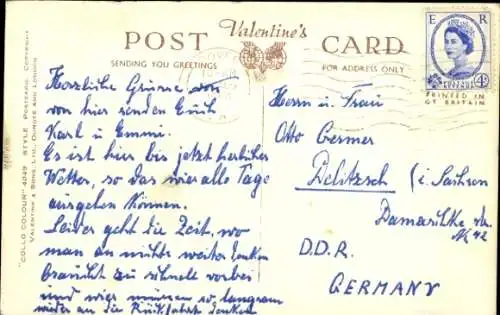 Valentine's
POST CARD
SENDING YOU GREETINGS
FOR ADDRESS ONLY
E R
POSTAGE REVENUE
4D
PRINTED IN
GT BRITAIN
"COLLO COLOUR" 4049 STYLE POSTCARD, COPYRIGHT
VALENTINE & SONS, LTD., DUNDEE AND LONDON
Herzliche Grüsse von
von hier senden Euch
Karl u. Emmi.
Es ist hier bis jetzt herrliches
Wetter, so das wir alle Tage
ausgehen können.
Leider geht die Zeit, wo
man an nichts weiter denken
braucht zu schnell vorbei
und wir müssen so langsam
wieder an die Rückfahrt denken
Herrn u. Frau
Otto Germer
Delitzsch (i. Sachsen
Damaschke str.
Nr 42
D.D.R.
GERMANY